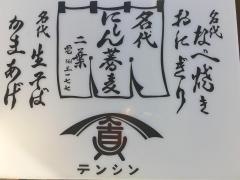 名代
なべ焼き
おにぎり
名代
にしん蕎麦
二葉
名代
生そば
かまあげ
テンシン